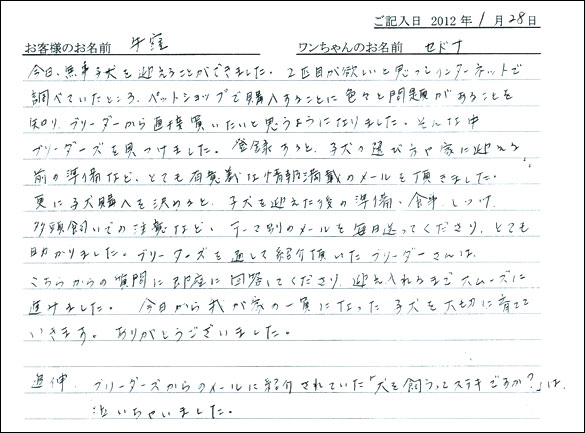 ご記入日 2012年 1月 28日
お客様のお名前 牛窪 ワンちゃんのお名前 セドナ
今日、無事子犬を迎えることができました。2匹目が欲しいと思ってインターネットで
調べていたところ、ペットショップで購入することに色々と問題があることを
知り、ブリーダーから直接買いたいと思うようになりました。そんな中
ブリーダーズを見つけました。登録すると、子犬の選び方や家に迎える
前の準備など、とても有意義な情報満載のメールを頂きました。
更に子犬購入を決めると、子犬を迎えた後の準備、食事、しつけ、
多頭飼いでの注意など、テーマ別のメールを毎日送ってくださり、とても
助かりました。ブリーダーズを通して紹介頂いたブリーダーさんは、
こちらからの質問に即座に回答してくださり、迎え入れるまでスムーズに
進けました。今日から我が家の一員になった子犬を大切に育てて
いきます。ありがとうございました。
追伸、ブリーダーズからのメールに紹介されていた「犬を飼うってステキですか？」は、
泣いちゃいました。